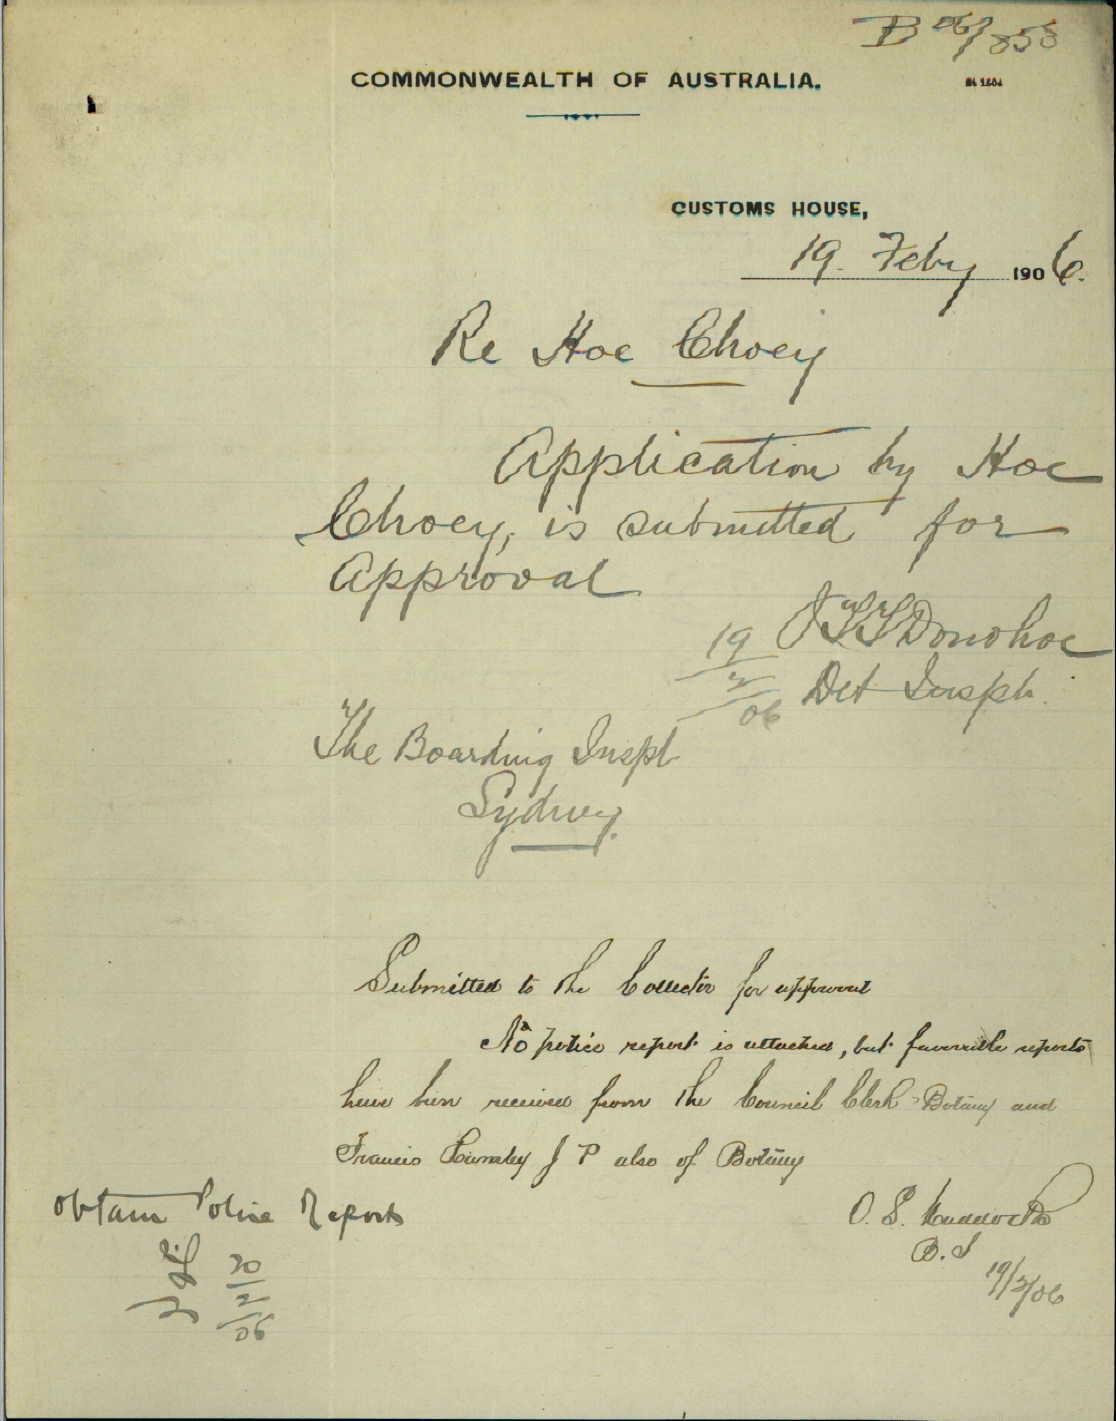 B 06/858
COMMONWEALTH OF AUSTRALIA.
CUSTOMS HOUSE,
19. Feby 1906.
Re Hoe Choey
Application by Hoe
Choey, is submitted for
Approval
J T T Donohoe
Det Inspr.
19/2/06
The Boarding Inspr
Sydney.
Submitted to the Collector for approval
No police report is attached, but favourable reports
have been received from the Council Clerk Botany and
Francis J P also of Botany
O. S. Maddocks
B. I
19/2/06
Obtain Police Reports
20/2/06